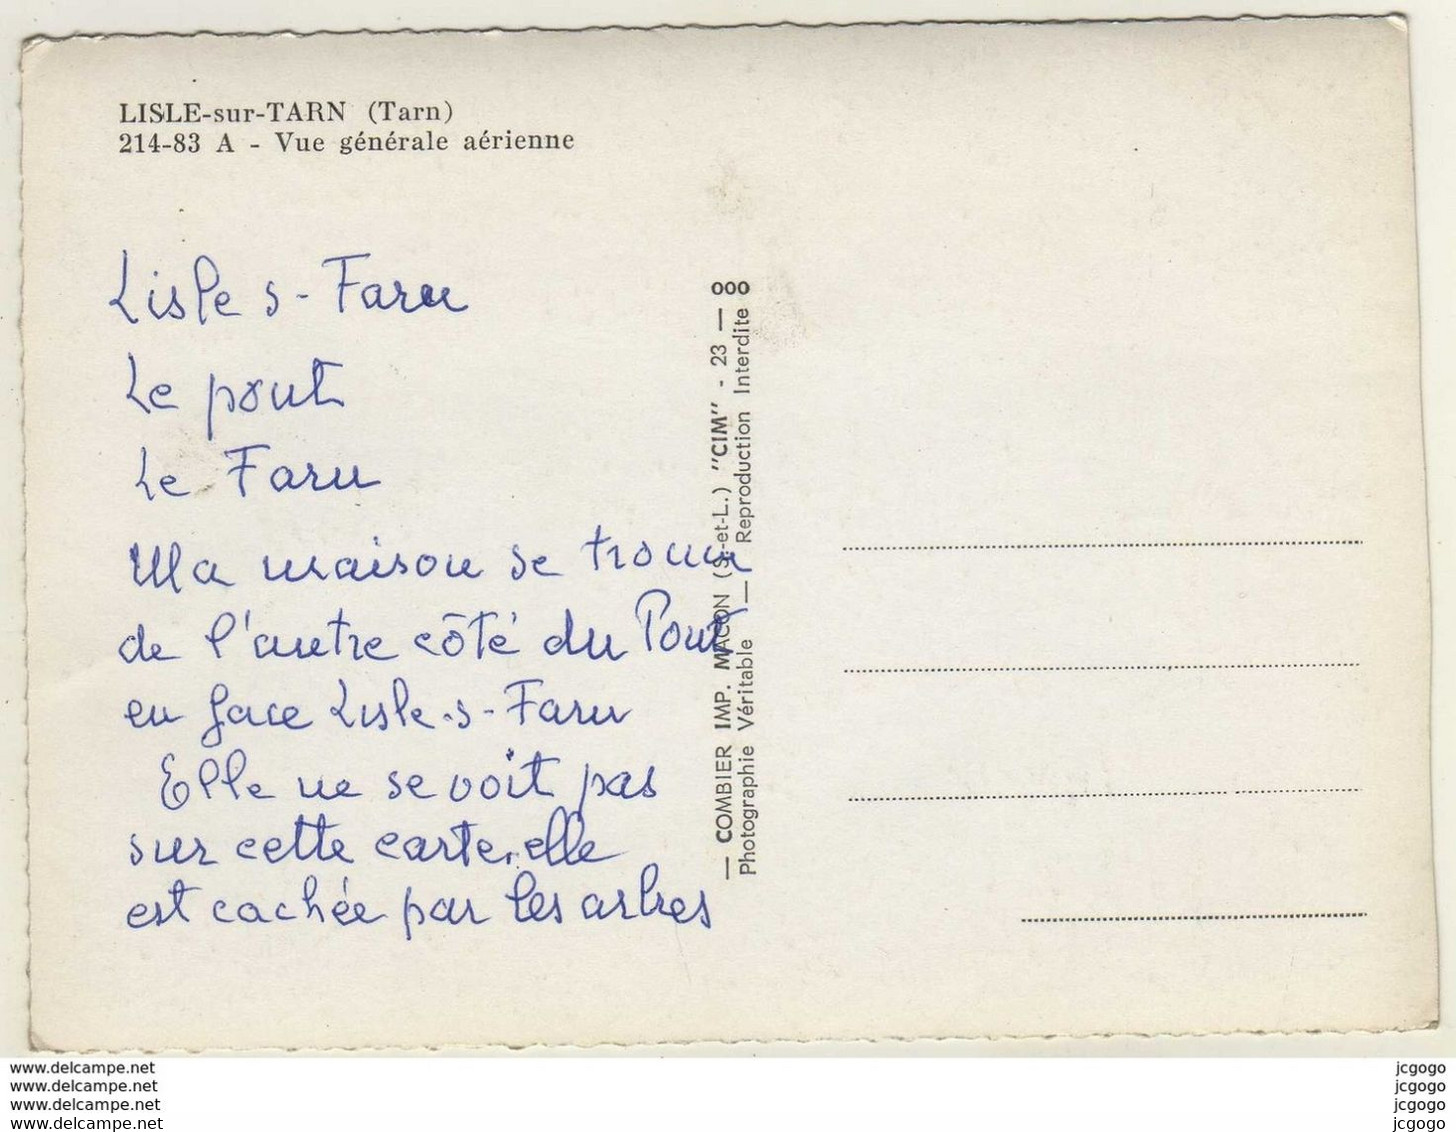 LISLE-sur-TARN (Tarn)
214-83 A - Vue générale aérienne
Lisle s - Tarn
Le pont
Le Tarn
Ma maison se trouve
de l'autre côté du Pont
en face Lisle-s-Tarn
Elle ne se voit pas
sur cette carte, elle
est cachée par les arbres
— COMBIER IMP. MACON (S.-et-L.) "CIM" - 23 — 000
Photographie Véritable — Reproduction Interdite
www.delcampe.net
www.delcampe.net
www.delcampe.net
www.delcampe.net
jcgogo
jcgogo
jcgogo
jcgogo